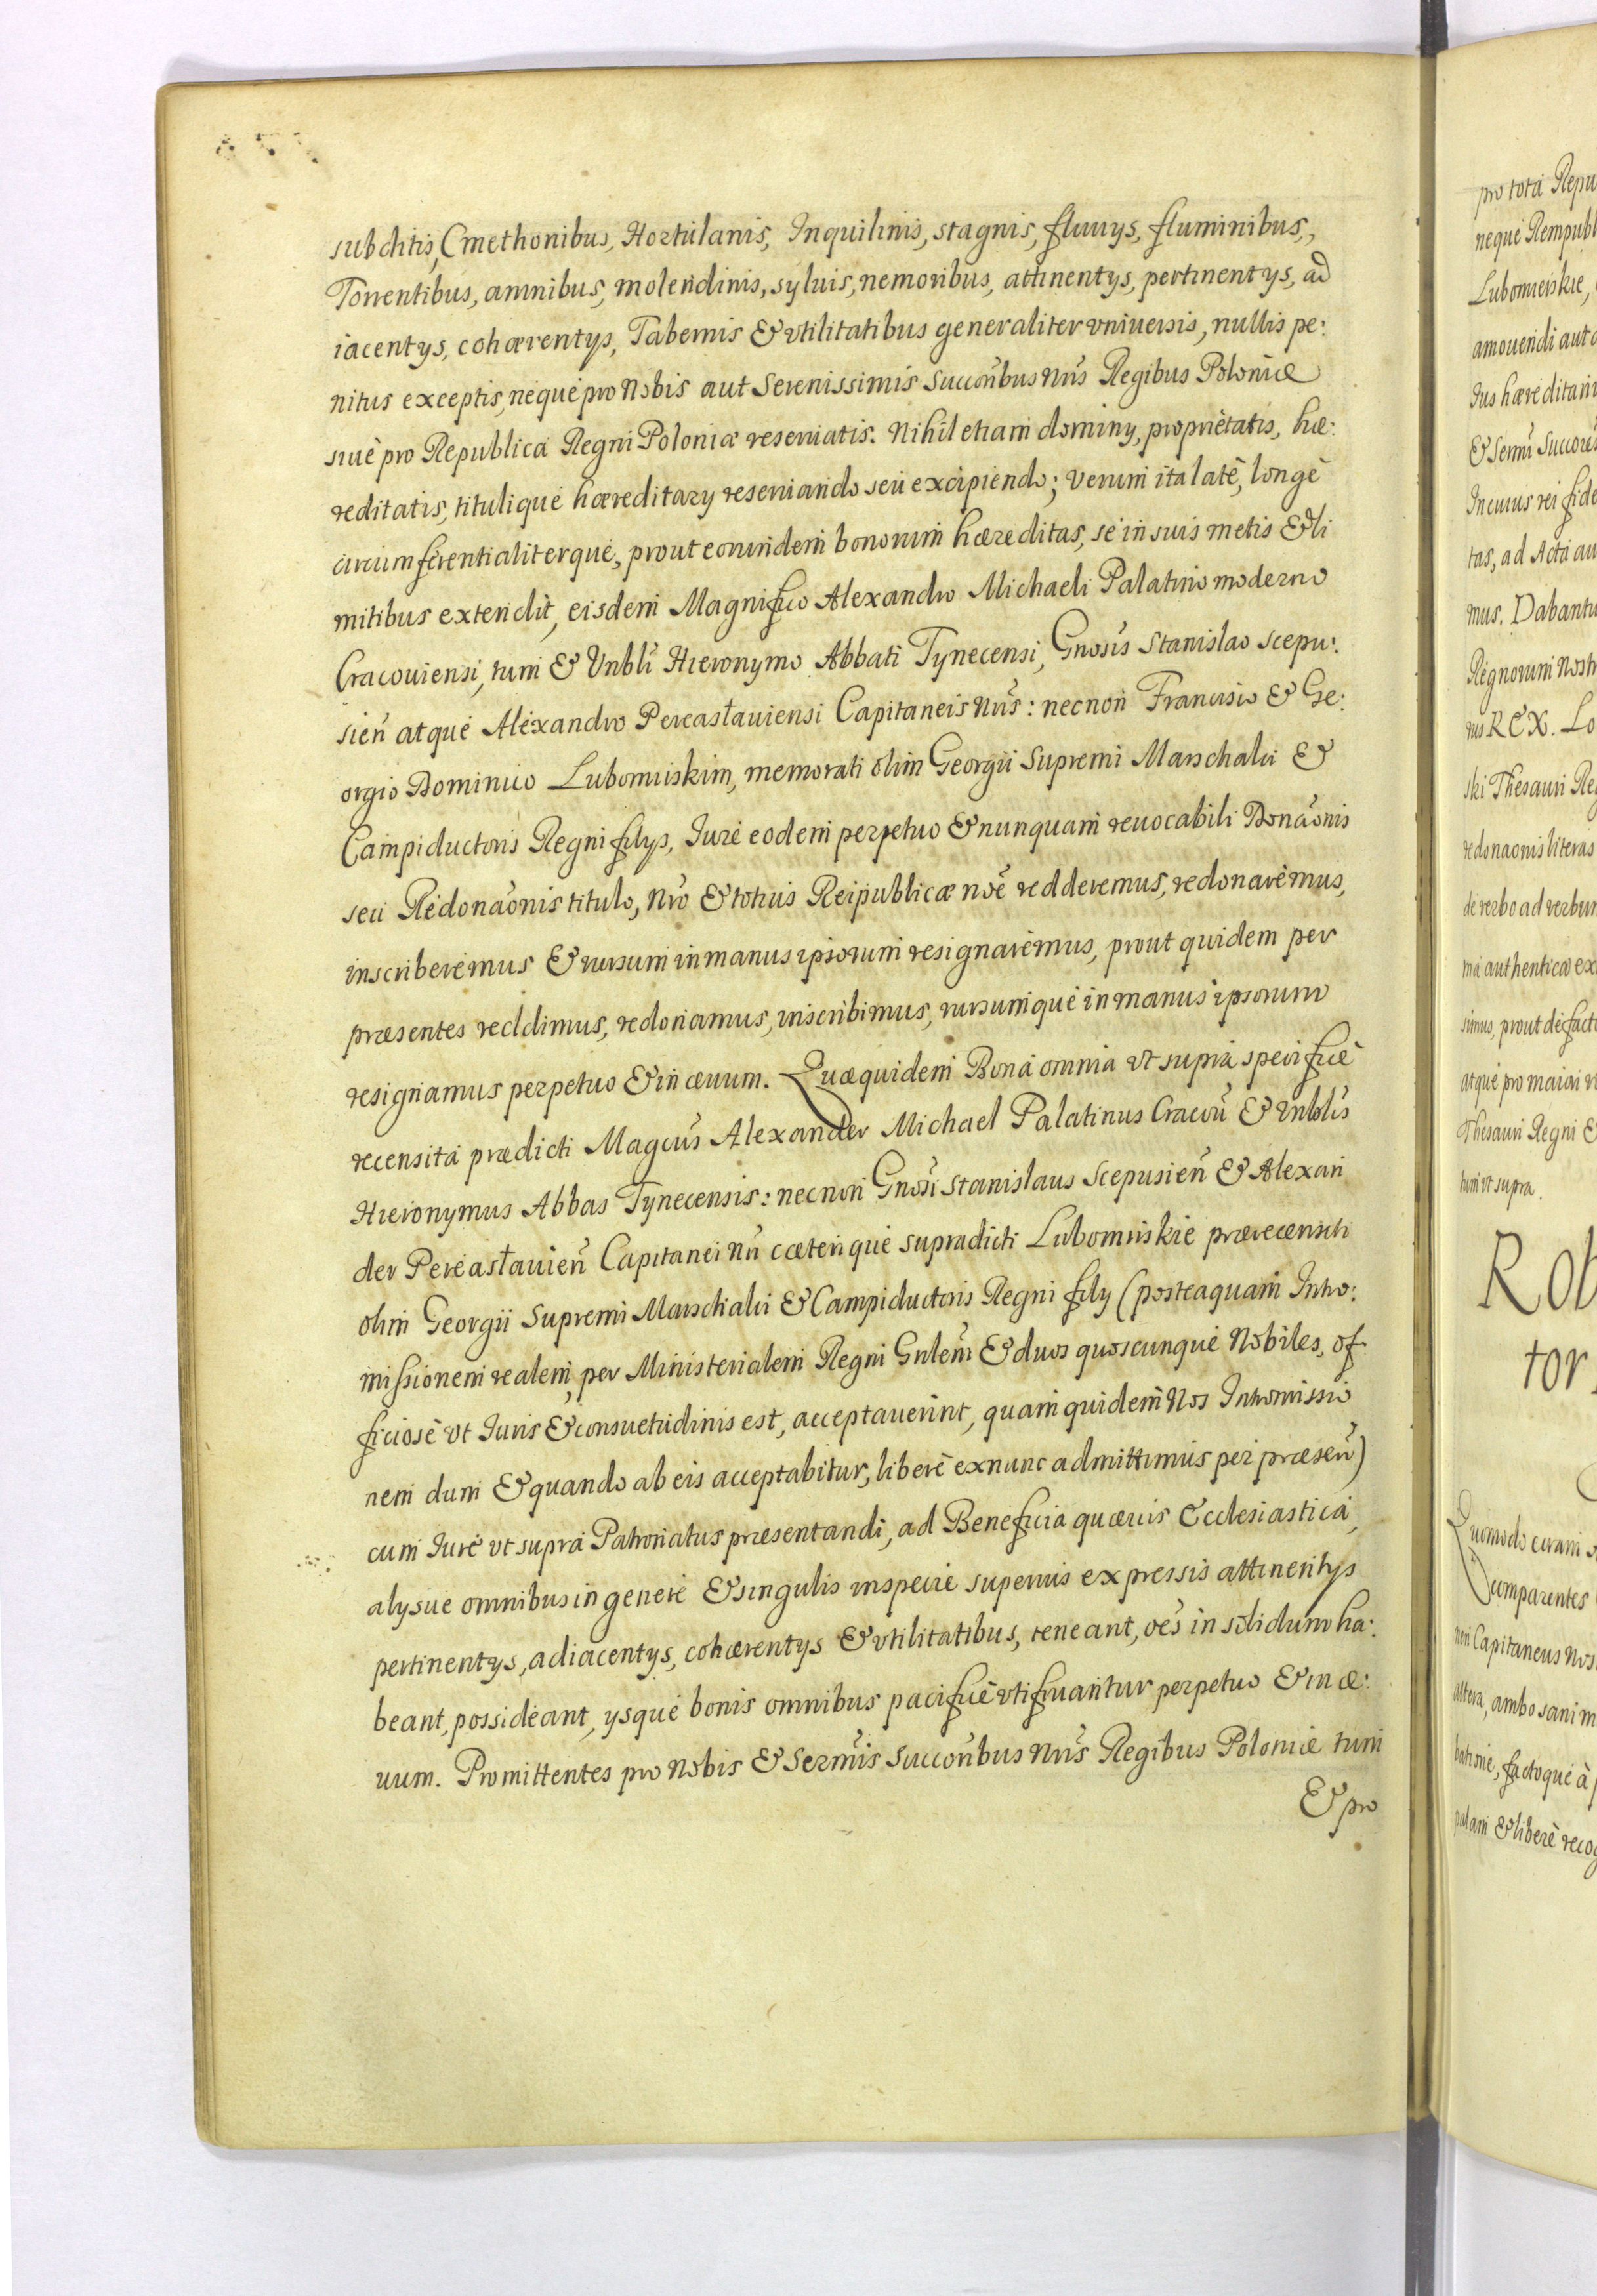 subditis, Cmethonibus, Hortulanis, Inquilinis, stagnis, fluuys, fluminibus,
Torrentibus, amnibus, molendinis, syluis, nemoribus, attinentys, pertinentys, ad
iacentys, cohærentys, Tabernis & vtilitatibus generaliter vniuersis, nullis pe:
nitus exceptis, neque pro Nobis aut Serenissimis Succoribus Nris Regibus Poloniæ
siuè pro Republica Regni Poloniæ reseruatis. Nihil etiam dominy, proprietatis, hæ:
reditatis, titulique hæreditary reseruando seu excipiendo; Verum ita latè, longè
circumferentialiterque, prout eorundem bonorum hæreditas, se in suis metis & li
mitibus extendit, eisdem Magnifico Alexandro Michaeli Palatino moderno
Cracouiensi, tum & Vnbli Hieronymo Abbati Tynecensi, Gnosis Stanislao Scepu:
sien̄ atque Alexandro Pereasłauiensi Capitaneis Nris: necnon Francisco & Ge:
orgio Dominico Lubomirskim, memorati olim Georgii Supremi Marschalci &
Campiductoris Regni filys, Iure eodem perpetuo & nunquam reuocabili Donaōnis
seu Redonaōnis titulo, Nro & totius Reipublicæ noē redderemus, redonaremus,
inscriberemus & rursum in manus ipsorum resignaremus, prout quidem per
præsentes reddimus, redonamus, inscribimus, rursumque in manus ipsorum
resignamus perpetuo & in æuum. Quæquidem Bona omnia vt supra specificè
recensita prædicti Magcus Alexander Michael Palatinus Cracou̅ & Vnblis
Hieronymus Abbas Tynecensis: necnon Gnosi Stanislaus Scepusien̄ & Alexan
der Pereasłauien̄ Capitanei Nri cæterique supradicti Lubomirskie prærecensiti
olim Georgii Supremi Marschalci & Campiductoris Regni fily (posteaquam Intro:
missionem realem per Ministerialem Regni Gnlem̄ & duos quoscunque Nobiles, of
ficiosè vt Iuris & consuetudinis est, acceptauerint, quam quidem Nos Intromissio
nem dum & quando ab eis acceptabitur, liberè exnunc admittimus per præsen̄)
cum Iure vt supra Patronatus præsentandi, ad Beneficia quæuis Ecclesiastica,
alysue omnibus in genere & singulis in specie superius expressis attinentys
pertinentys, adiacentys, cohærentys & vtilitatibus, teneant, oēs in solidum ha:
beant, possideant, ysque bonis omnibus pacificè vtifruantur perpetuo & in æ:
uum. Promittentes pro Nobis & Sermis Succoribus Nris Regibus Poloniæ tum
& pro
pro tota Repu
neque Rempubl
Lubomirskie,
amouendi aut
Ius hæreditari
& Sermi Succores
In cuius rei fide
tas, ad Acta au
mus. Dabantu
Regnorum Nostr
rus REX. Lo
ski Thesauri Reg
redonaonis literas
de verbo ad verbum
ma authentica ex
simus, prout de fact
atque pro maiori
Thesauri Regni &
tum vt supra.
Rob
tor
Quomodo coram
Comparentes
nen Capitaneus Nos
altera, ambo sani m
batione, factoque à
palam & liberè recog